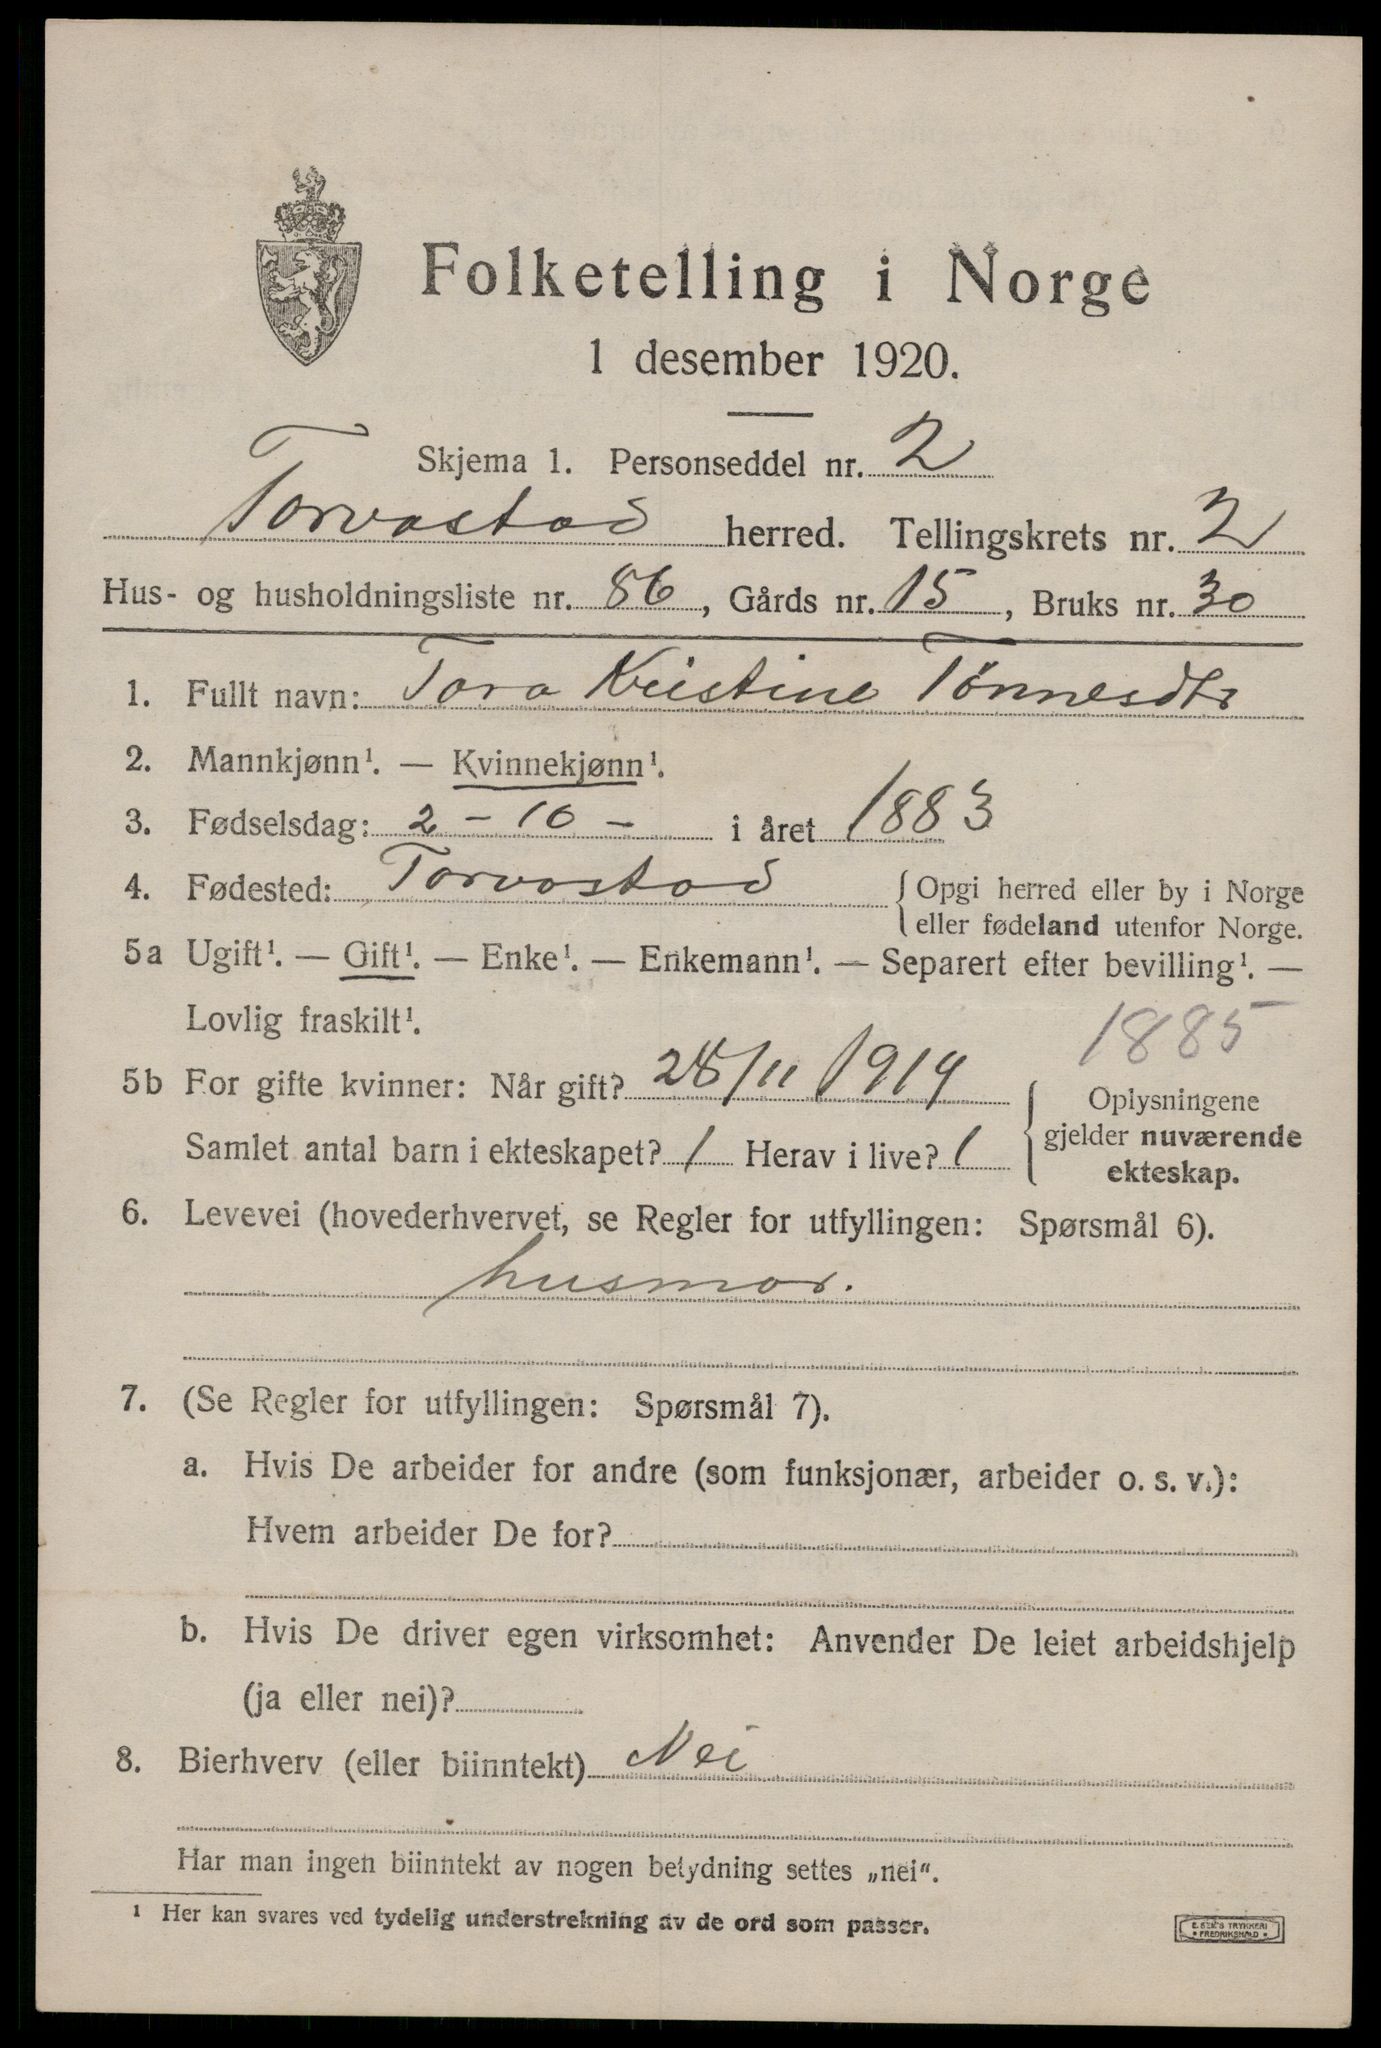 Folketelling i Norge
1 desember 1920.
Skjema 1. Personseddel nr. 2
Torvastad herred. Tellingskrets nr. 2
Hus- og husholdningsliste nr. 86, Gårds nr. 15, Bruks nr. 30
1. Fullt navn: Tora Kristine Tønnesdtr
2. Mannkjønn¹. — Kvinnekjønn¹.
3. Fødselsdag: 2 - 10 - i året 1883
4. Fødested: Torvastad { Opgi herred eller by i Norge
eller fødeland utenfor Norge.
5a Ugift¹. — Gift¹. — Enke¹. — Enkemann¹. — Separert efter bevilling¹. —
Lovlig fraskilt¹.
1885
5b For gifte kvinner: Når gift? 28/11 1914
Samlet antal barn i ekteskapet? 1 Herav i live? 1
{ Oplysningene
gjelder nuværende
ekteskap.
6. Levevei (hovederhvervet, se Regler for utfyllingen: Spørsmål 6).
husmor.
7. (Se Regler for utfyllingen: Spørsmål 7).
a. Hvis De arbeider for andre (som funksjonær, arbeider o. s. v.):
Hvem arbeider De for?
b. Hvis De driver egen virksomhet: Anvender De leiet arbeidshjelp
(ja eller nei)?
8. Bierhverv (eller biinntekt) Nei
Har man ingen biinntekt av nogen betydning settes „nei“.
1 Her kan svares ved tydelig understrekning av de ord som passer.
E. SEM'S TRYKKERI
• FREDRIKSHALD •